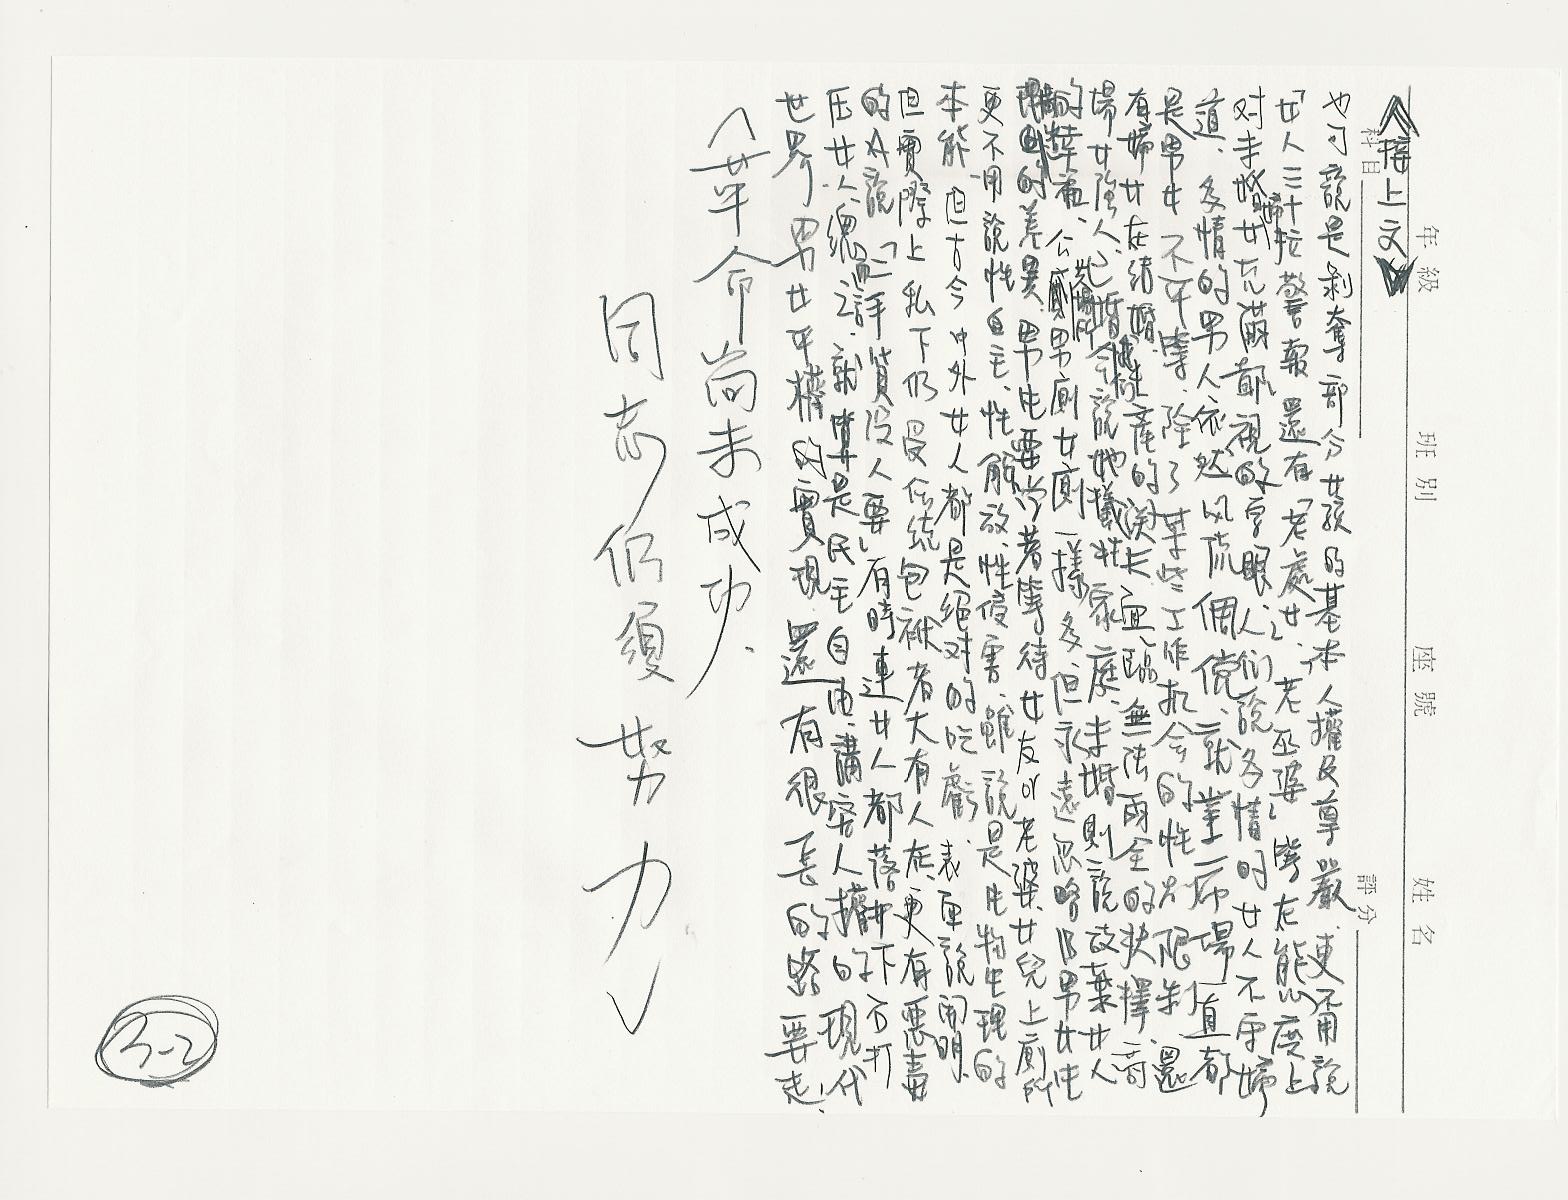 年級 班別 座號 姓名
科目 評分
《接上文》
也可說是剝奪部分女孩的基本人權及尊嚴、更不用說
「女人三十拉警報」還有「老處女」、「老巫婆」皆在態度上
对未婚婦女充滿鄙視的字眼、人们說多情的女人不守婦
道、多情的男人依然风流倜儻、就業市場一直都
是男女不平等、除了某些工作机会的性別限制、還
有婦女在結婚、生產的淚长面臨無法兩全的抉擇、商
場女強人、已婚會說她犧牲家庭、未婚則說放棄女人
的幸福、公共場所男廁女廁一樣多、但永遠忽略了男女生
的差異、男生要学著等待女友or老婆、女兒上廁所
更不用說性自主、性解放、性侵害、雖說是生物生理的
本能、但古今中外女人都是絕对的吃虧、表面說開明、
但實際上私下仍受传統包袱者大有人在、更有惡毒
的人說「二手貨沒人要」有時連女人都落井下石打
压女人、總之、就算是民主自由、講究人權的現代
世界、男女平權的實現、還有很長的路要走!
〈革命尚未成功、
同志仍須努力〉
3-2